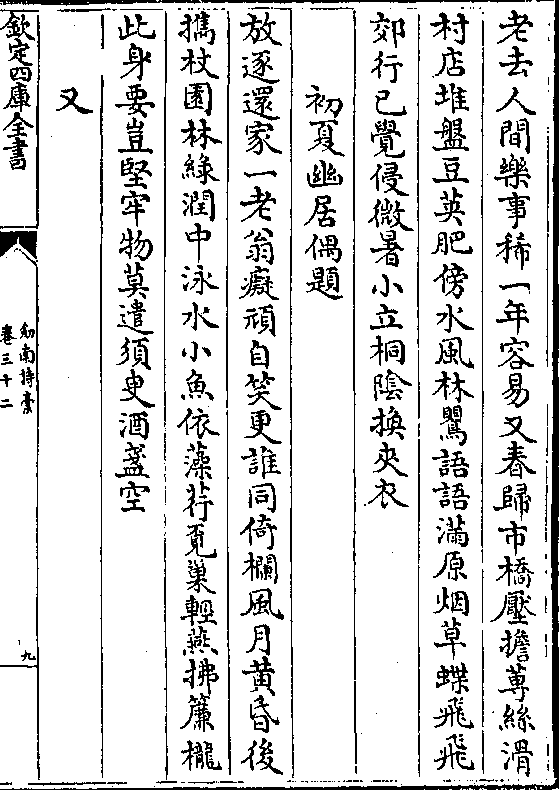 老去人間樂事稀一年容易又春歸市橋壓擔蓴絲滑
村店堆盤豆莢肥傍水風林鶯語語滿原烟草蝶飛飛
郊行已覺侵微暑小立桐隂換夾衣
初夏幽居偶題
放逐還家一老翁癡頑自笑更誰同倚欄風月黄昏後
攜杖園林綠潤中泳水小魚依藻荇覓巢輕燕拂簾櫳
此身要豈堅牢物莫遣須臾酒盞空
又
欽定四庫全書
劍南詩藁
卷三十二
九